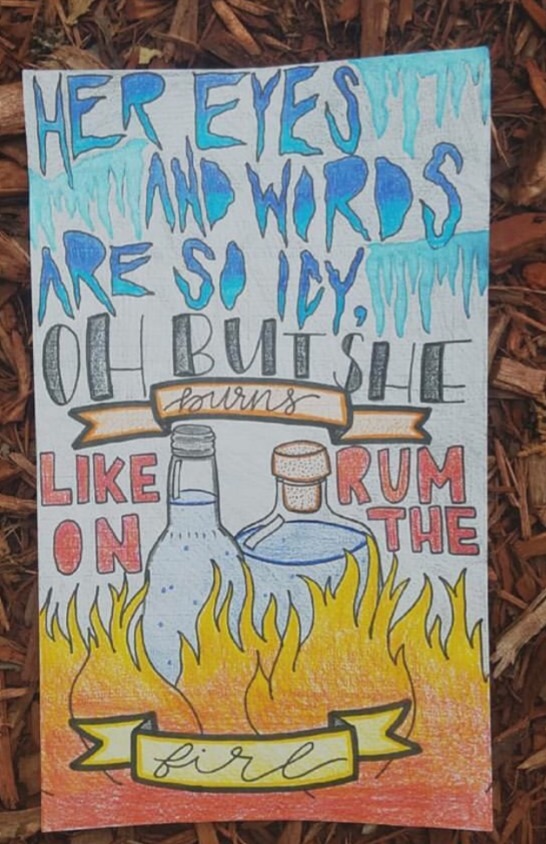 HER EYES
AND WORDS
ARE SO ICY,
OH BUT SHE
burns
LIKE RUM
ON THE
fire